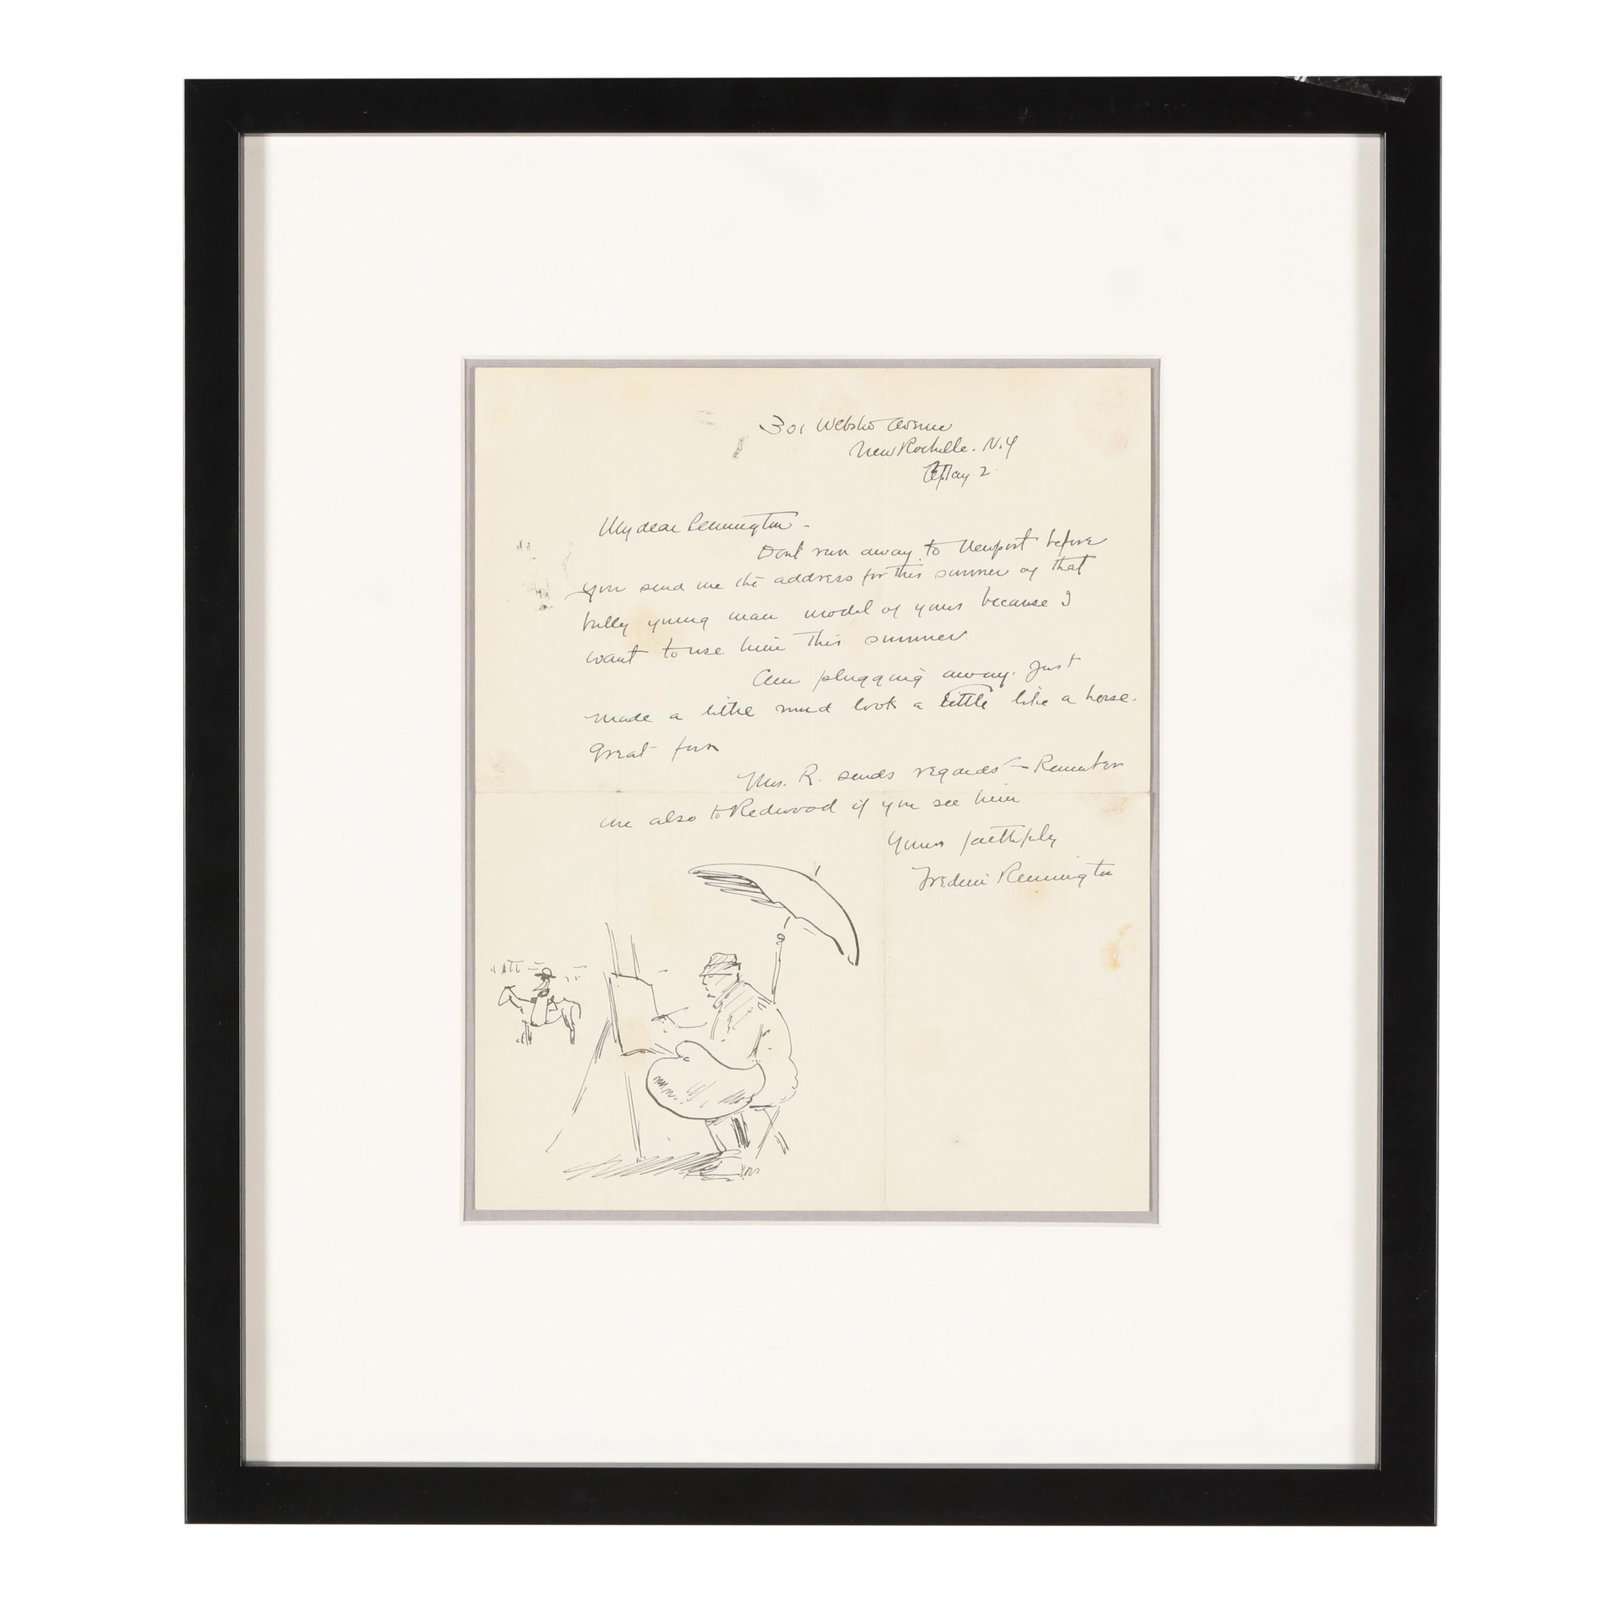 301 Webster Avenue
New Rochelle. N.Y
May 2.
My dear Remington -
Dont run away to Newport before
you send me the address for this summer of that
bully young man model of yours because I
want to use him this summer
Am plugging away. Just
made a little mud look a little like a horse.
Great fun
Mrs. R. sends regards - Remember
me also to Redwood if you see him
Yours faithfully
Frederic Remington